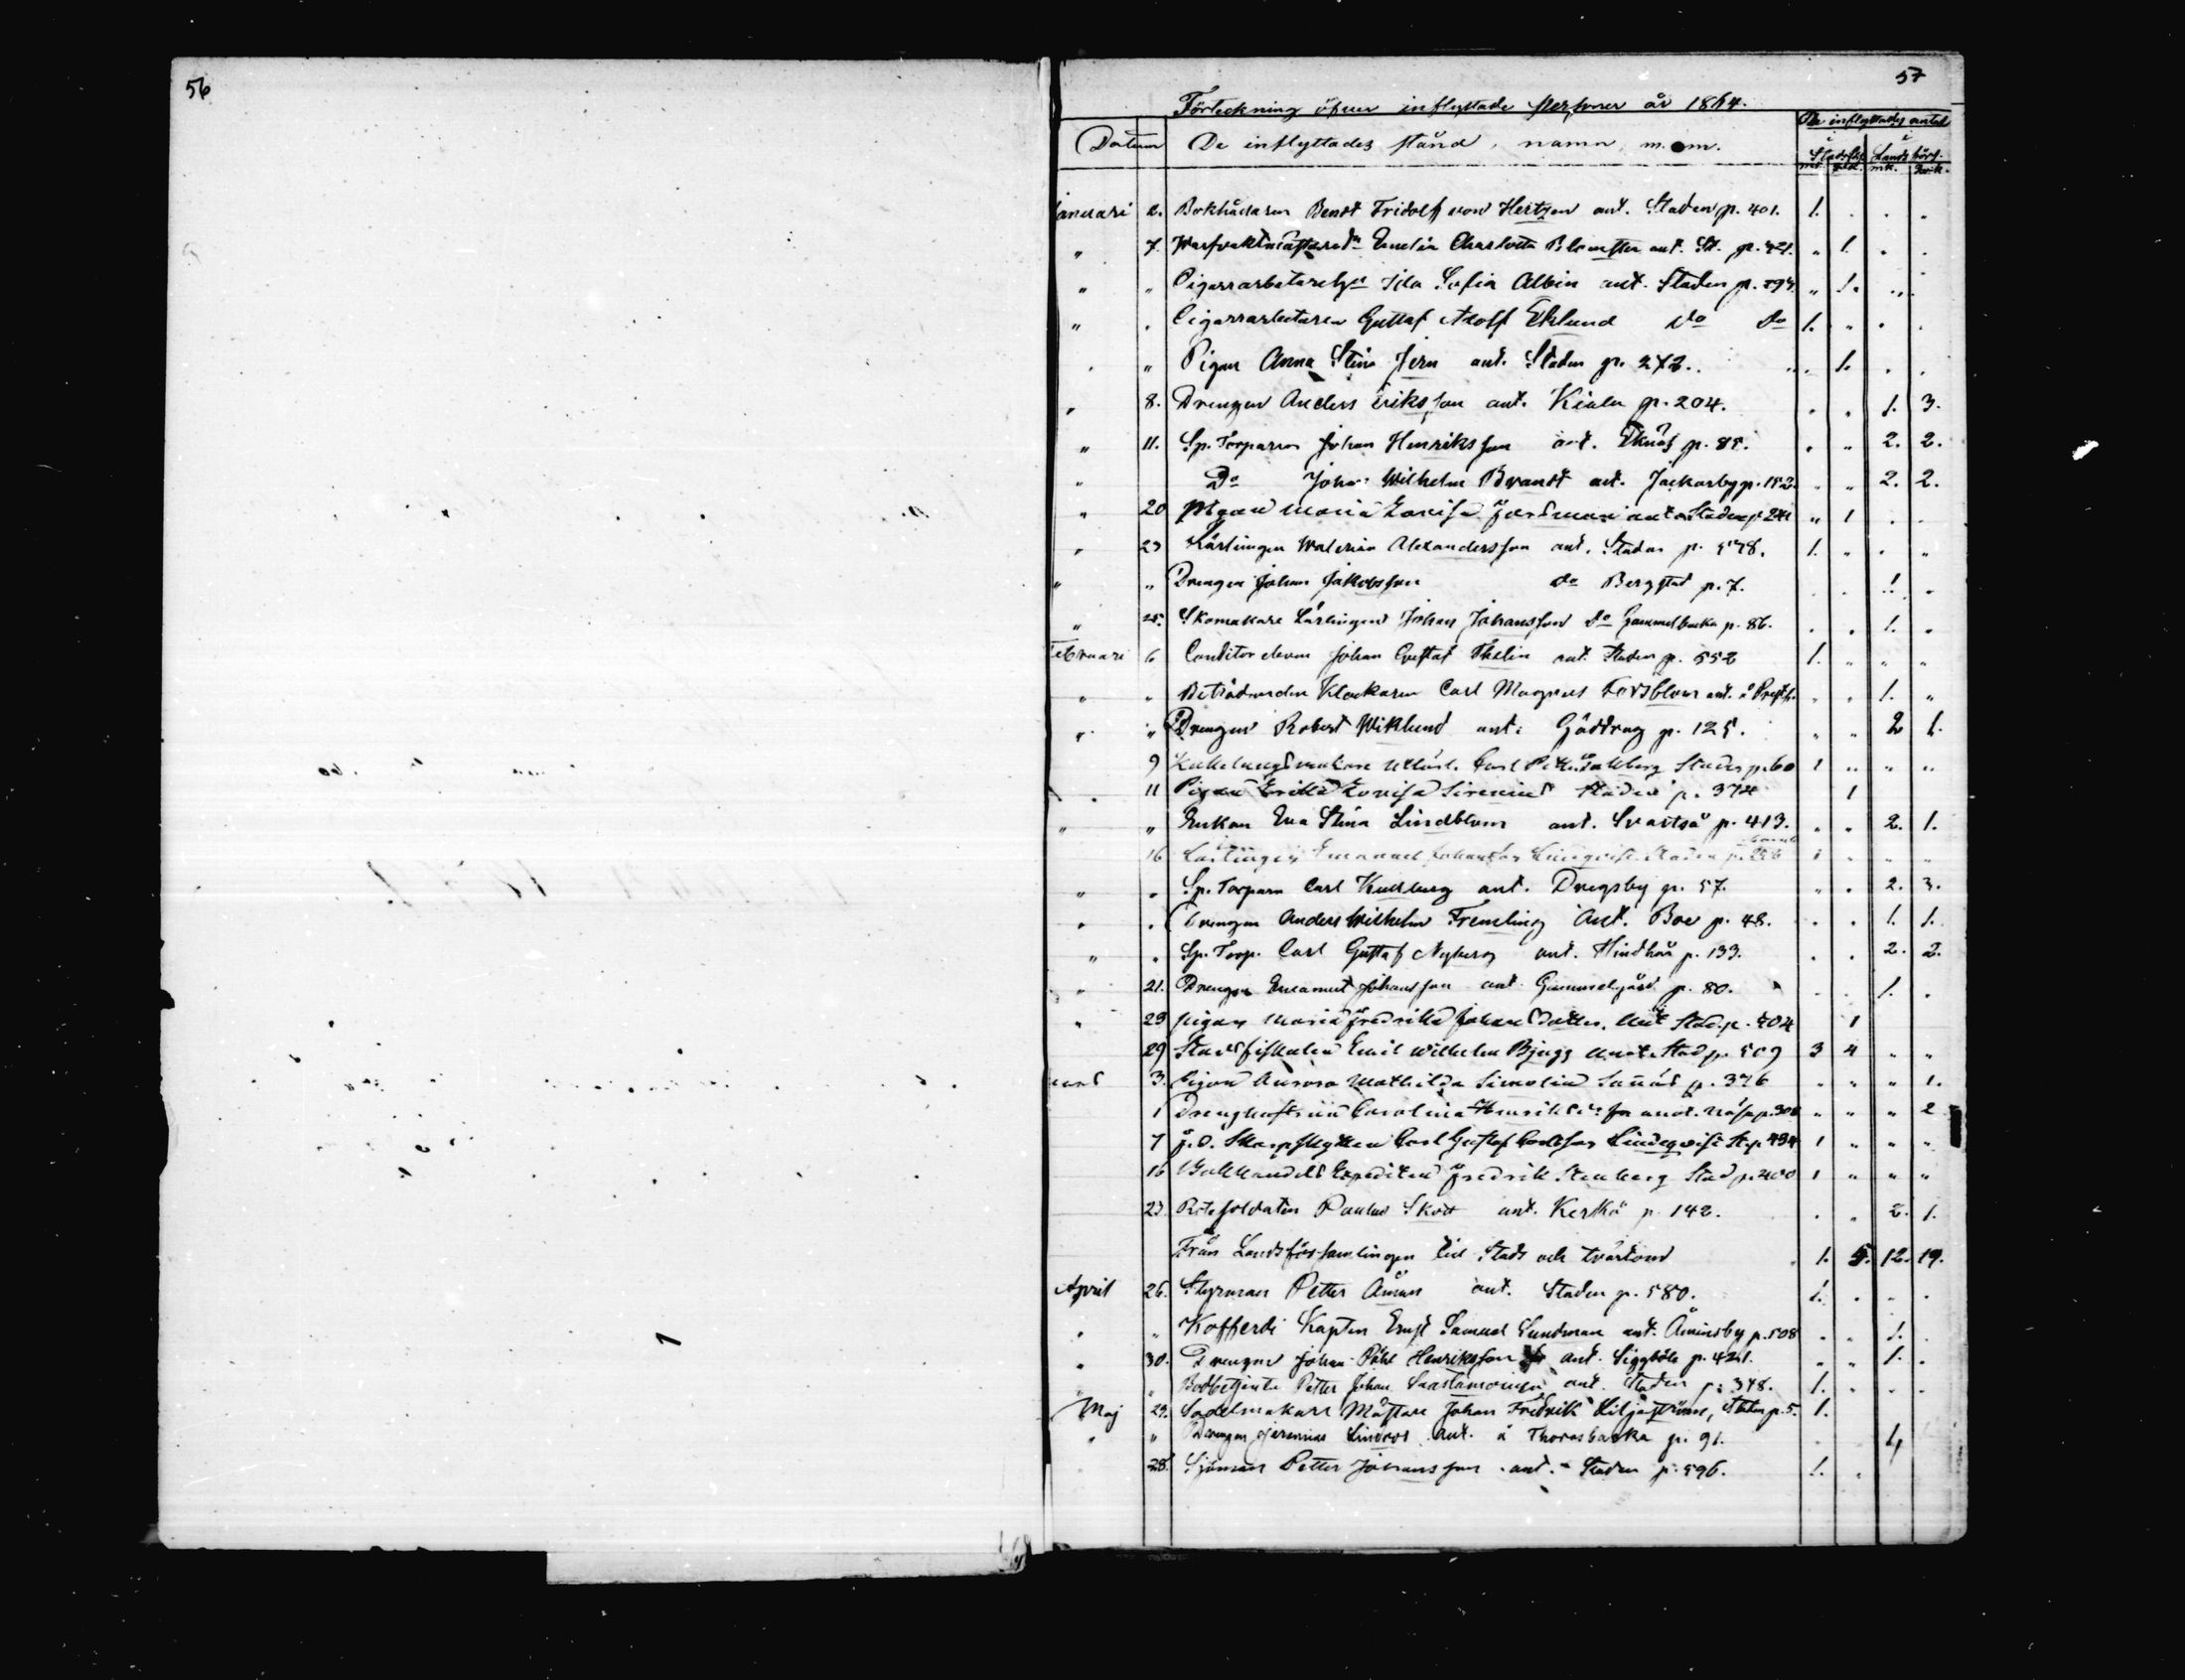 56
57
Förteckning öfver inflyttade personer år 1864.
De inflyttades antal
Datum De inflyttades stånd, namn m. m.
Stadsförs. Landsförs.
mk. qvk. mk. qvk.
Januari 2. Bokhållaren Bendt Fridolf von Hertzen ant. Staden p. 401. 1.
" 7. Emelia Charlotta Blomster ant. St. p. 421. " 1.
" " Cigarrarbeterskan Ida Sofia Albin ant. Staden p. 594. " 1.
" " Cigarrarbetaren Gustaf Adolf Eklund do do 1.
" " Pigan Anna Stina Jern ant. Staden p. 272. 1.
" 8. Drengen Anders Eriksson ant. Kiala p. 204. 1. 3.
" 11. Sp. Torparen Johan Henriksson ant. Eknäs p. 85. 2. 2.
" Do Johan Wilhelm Brandt ant. Jackarby p. 152. 2. 2.
" 20 Pigan Maria Lovisa Forsman ant. Staden p. 241 " 1
" 23 Lärlingen Walerian Alexandersson ant. Staden p. 578. 1.
" " Drengen Johan Jakobsson do Bergstad p. 7. 1.
" 25. Skomakare Lärlingen Johan Johansson do Gammelbacka p. 86. 1.
Februari 6 Conditor eleven Johan Gustaf Thelin ant. Staden p. 552 1.
" " Biträdanden Klockaren Carl Magnus Forsblom ant. å Prestg. 1. "
" " Drengen Robert Wiklund ant. Gäddrag p. 125. 2 1.
9 Carl Petter Dahlberg Staden p. 60 1
11 Pigan Erika Lovisa Sirenius Staden p. 374 1
" " Enkan Eva Stina Lindblom ant. Svartså p. 413. 2. 1.
16 Lärlingen Emanuel Johansson Lindqvist Staden p. 256 1
" " Sp. Torparn Carl Kullberg ant. Drägsby p. 57. 2. 3.
" " Drengen Anders Wilhelm Fremling Ant. Boe p. 48. 1. 1.
" " Sp. Torp. Carl Gustaf Nyberg ant. Hindhår p. 133. 2. 2.
" 21. Drengen Emanuel Johansson ant. Gammelgård p. 80. 1.
" 23 Pigan Maria Fredrika Johansdotter. ant Stad. p. 404 1
29 Stadsfiskalen Emil Wilhelm Bjugg ant. Stad p. 509 3 4
Mars 3. Pigan Aurora Mathilda Simolin Sannäs p. 376 1.
1 Drenghustrun Carolina Henriksson anot. Näse p. 301 2
7 F. d. Skarpskytten Carl Gustaf Carlsson Lindeqvist St. p. 494 1
16 Bokhandels Expediten Fredrik Stenberg Stad p. 400 1
23 Rotesoldaten Paulus Skott ant. Kerkö p. 142. 2. 1.
Från Landsförsamlingen till Stads och tvärtom 1. 5. 12. 19.
April 26. Styrman Petter Åman ant. Staden p. 580. 1.
" " Kofferdi Kapten Ernst Samuel Sundman ant. Åminsby p. 508 1.
" 30. Drengen Johan Pihl Henriksson ant. Siggböle p. 421. 1.
" Bodbetjente Petter Johan Saastamoinen ant. Staden p. 378. 1.
Maj 23. Sadelmakare Mästare Johan Fredrik Liljeström, Staden p. 5. 1.
" " Drengen Jeremias Lindros ant. å Thorasbacka p. 91. 1,
28. Sjöman Petter Johansson ant. Staden p. 596. 1.